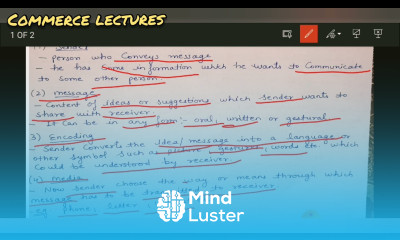 COMMERCE LECTURES
1 OF 2
(1) Sender
- Person who Conveys message
- He has Some information which he wants to Communicate
to some other person.
(2) message
- Content of ideas or suggestions which sender wants to
share with receiver.
- It can be in any form:- oral, written or gestural
3) Encoding
- Sender converts the idea/message into a language or
other symbol such as picture, gestures, words etc. which
could be understood by receiver
(4) Media
- Now sender choose the way or means through which
message has to be transmitted to receiver
eg phone, letter
Mind
Luster